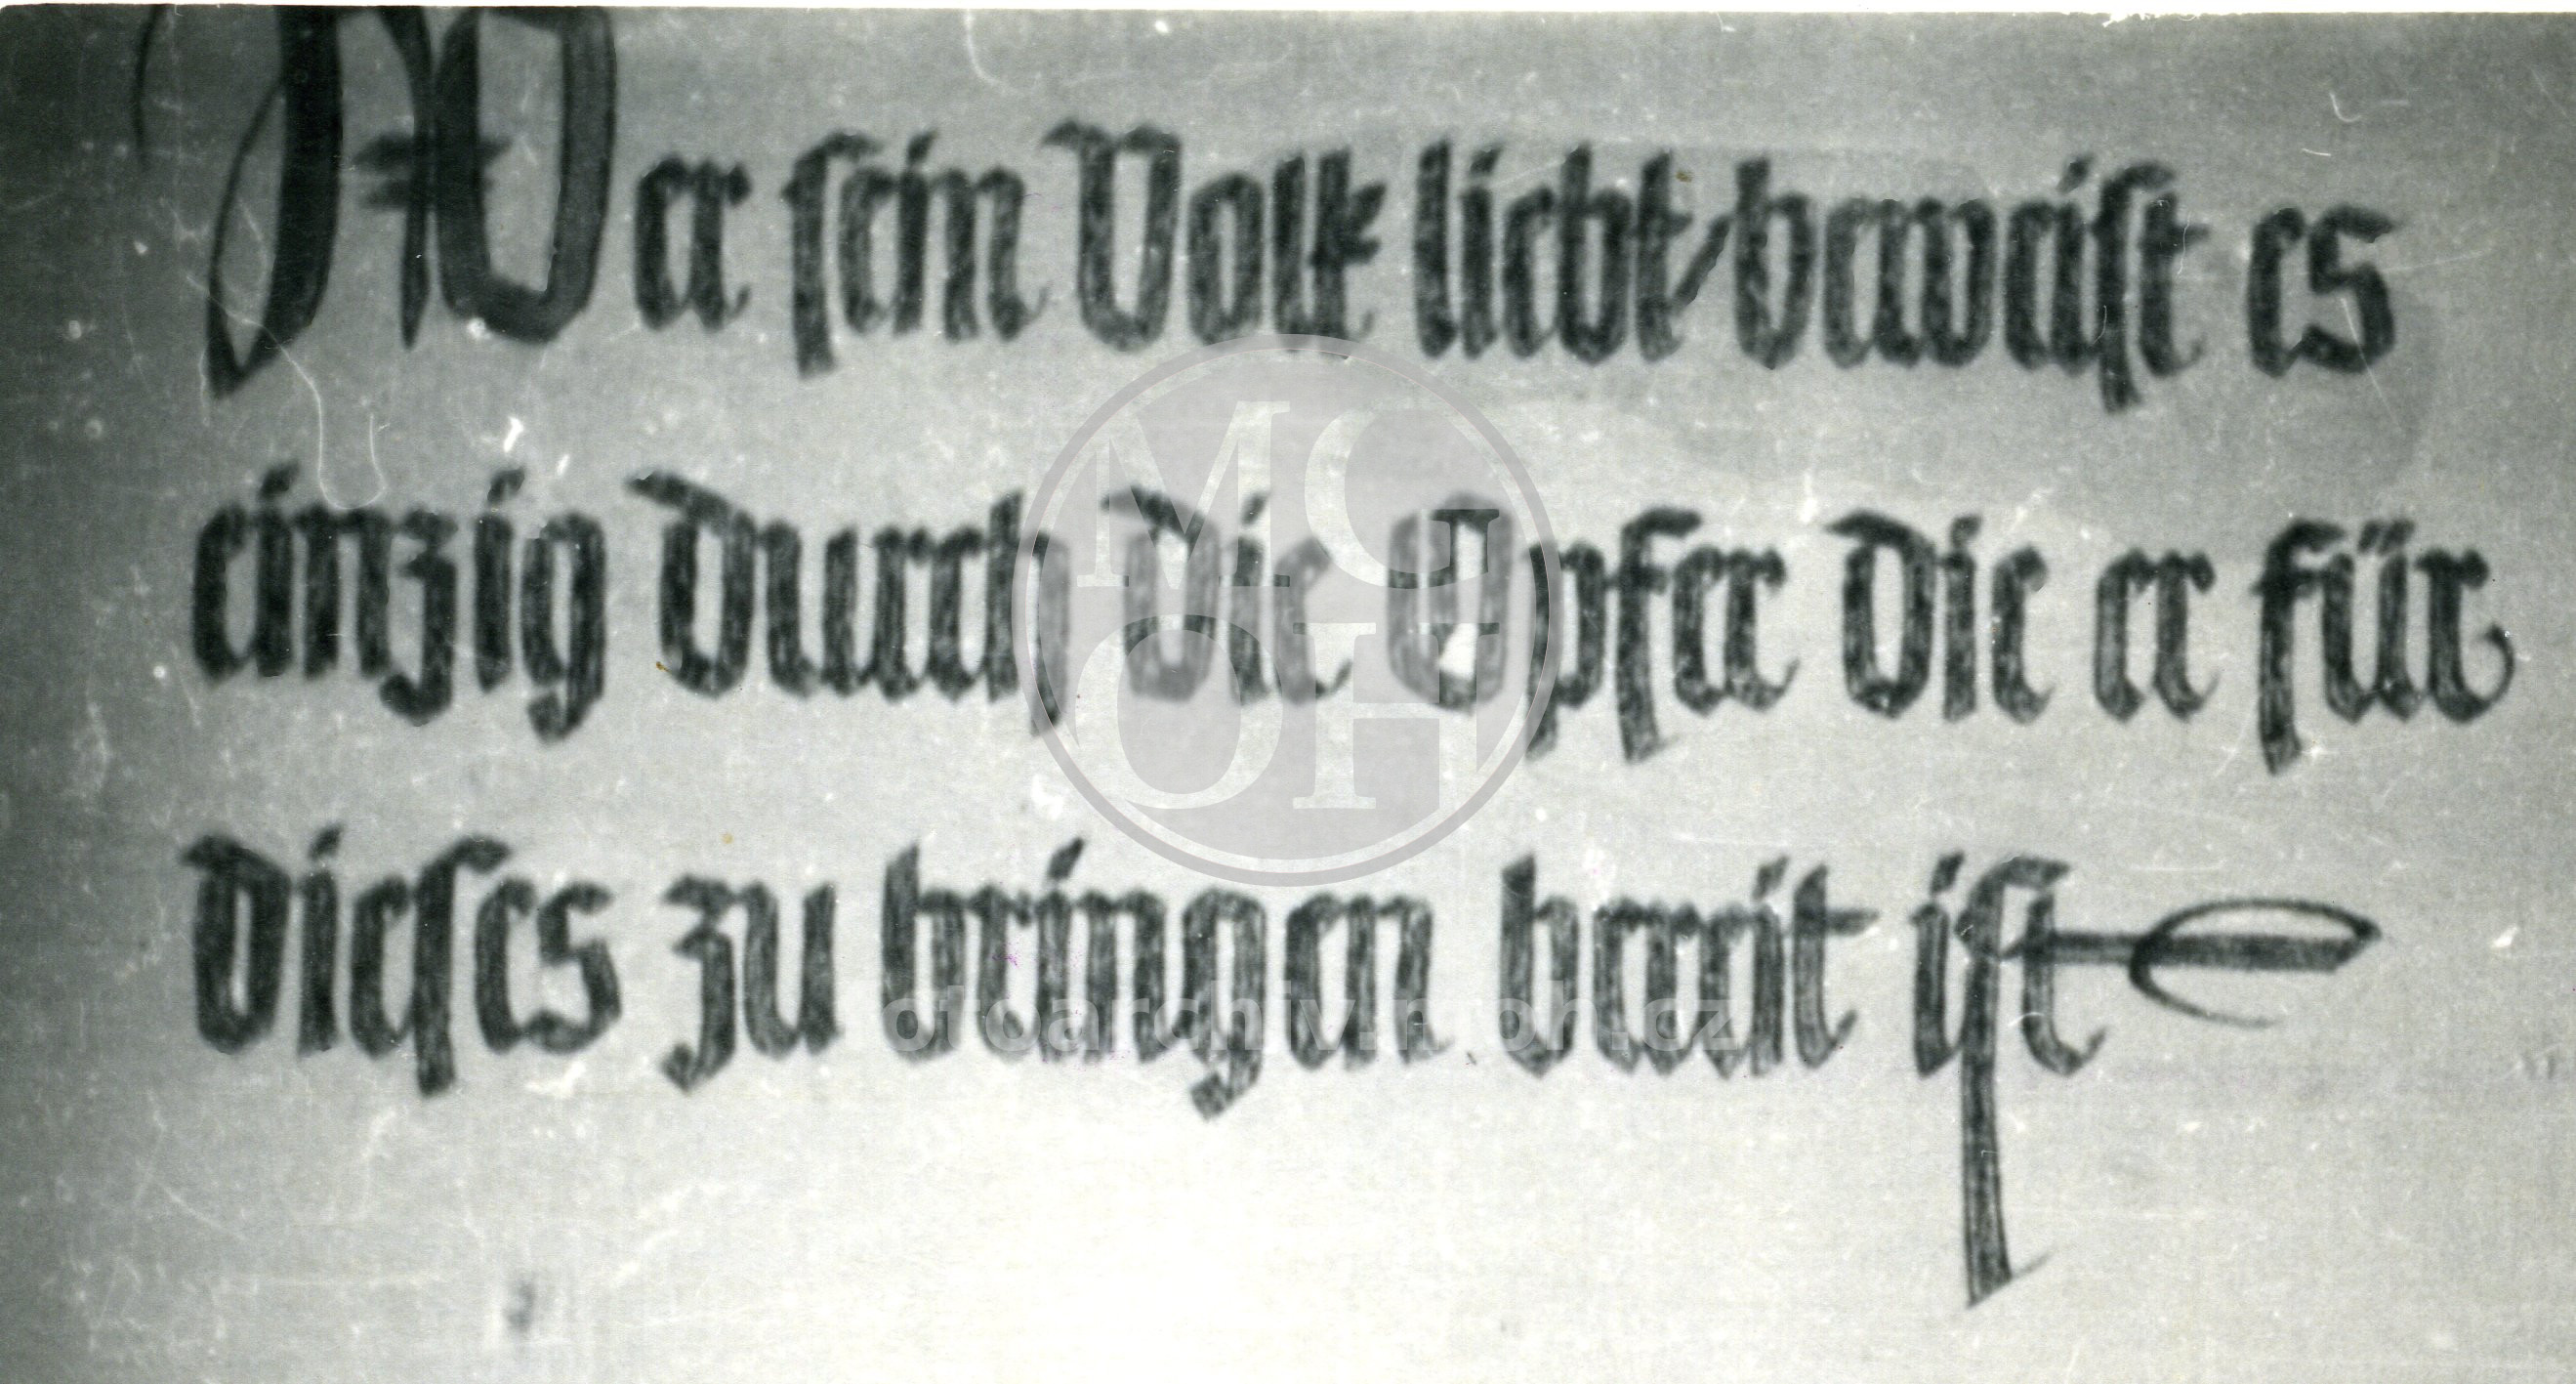 Wer sein Volk liebt, beweist es
einzig durch die Opfer die er für
dieses zu bringen bereit ist
MG
OH
fotoarchiv.mjoh.cz